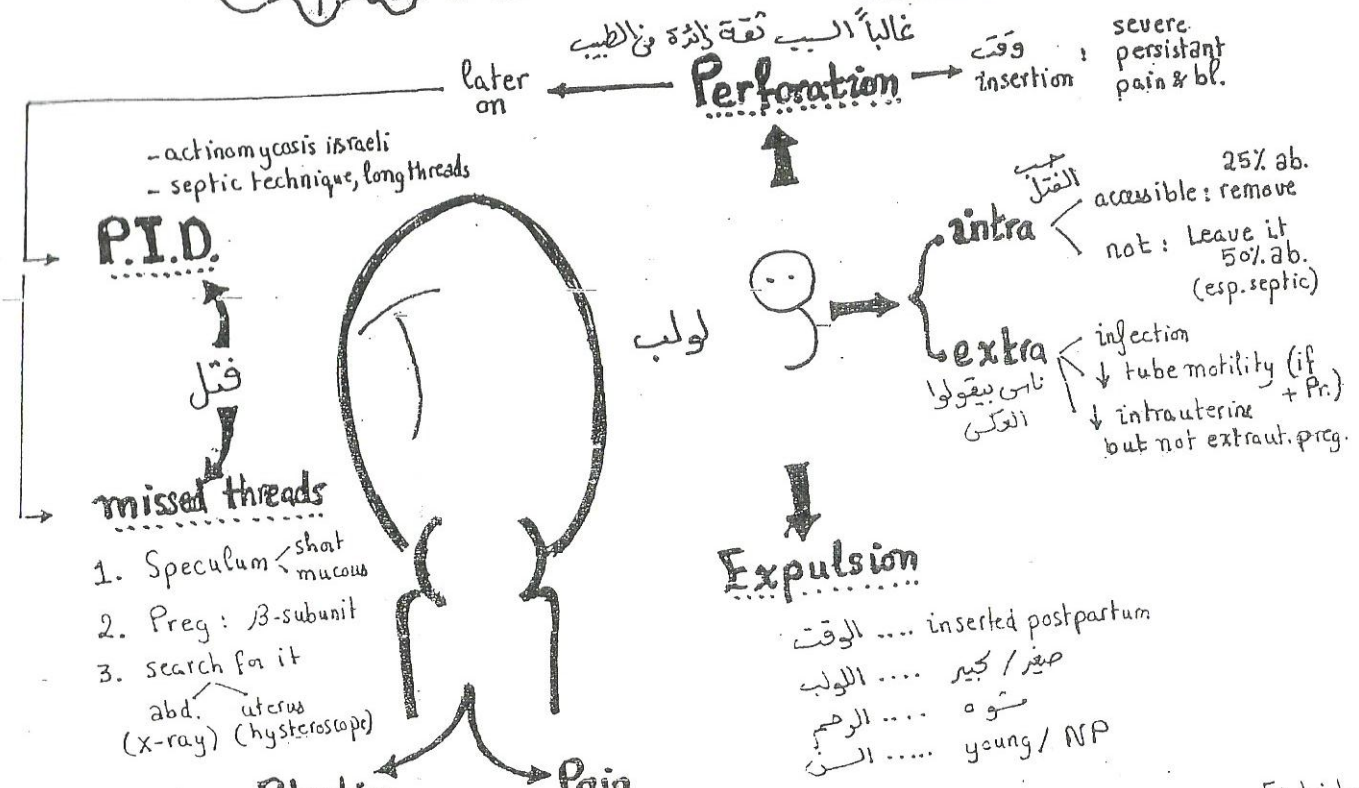 غالباً السبب ثقة زائدة في الطبيب
Perforation
later
on
وقت
insertion :
severe
persistant
pain & bl.
- actinomycosis israeli
- septic technique, long threads
P.I.D.
فتل
missed threads
1. Speculum
short
mucous
2. Preg : β-subunit
3. search for it
abd.
(x-ray)
uterus
(hysteroscope)
لولب
intra
الفتل
accessible : remove
25% ab.
not : Leave it
50% ab.
(esp. septic)
extra
ناس بيقولوا
العكس
infection
↓ tube motility (if
+ Pr.)
↓ intrauterine
but not extraut. preg.
Expulsion
الوقت .... inserted postpartum
اللولب .... صغير / كبير
الرحم .... مشوه
السن ..... young / NP
Pain